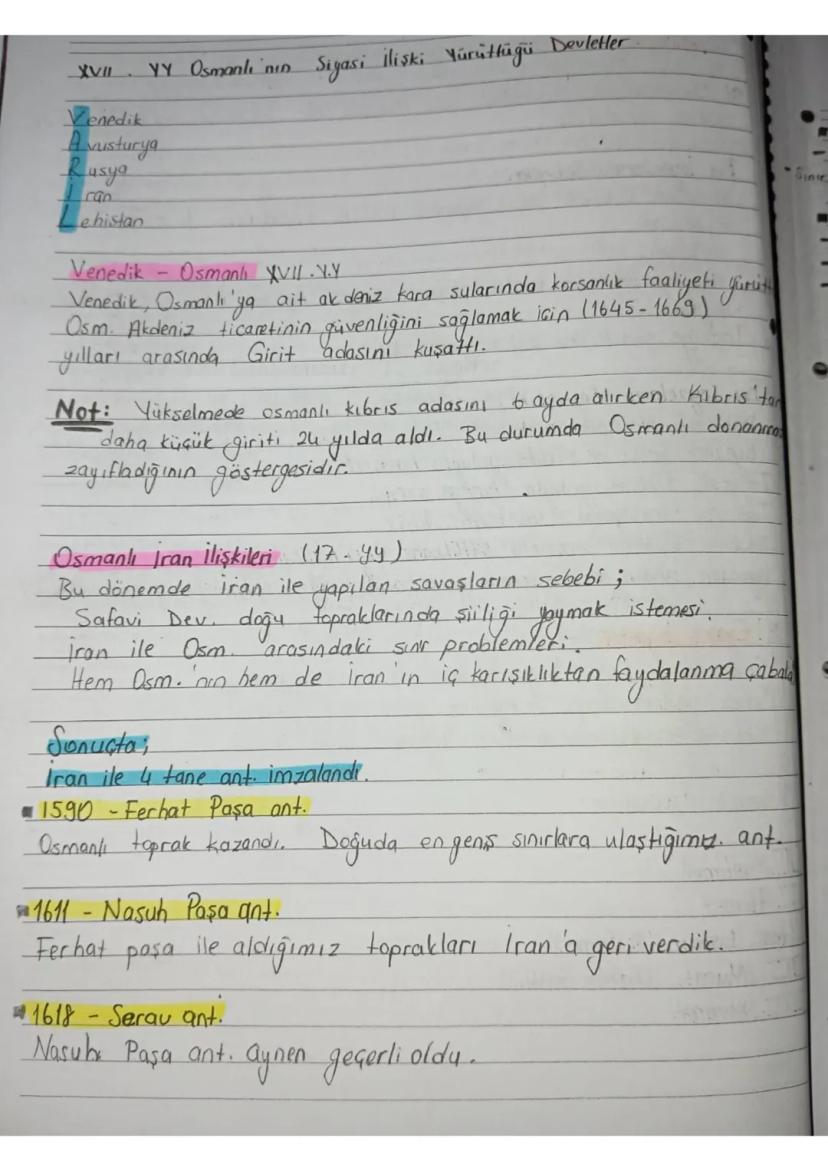 XVII. YY Osmanlı'nın Siyasi ilişki Yürüttüğü Devletler
Venedik
Avusturya
Rusya
İran
Lehistan
Venedik - Osmanlı XVII.Y.Y
Venedik, Osmanlı'ya ait akdeniz kara sularında korsanlık faaliyeti yürüt
Osm. Akdeniz ticaretinin güvenliğini sağlamak için (1645-1669)
yılları arasında Girit adasını kuşattı.
Not: Yükselmede osmanlı kıbrıs adasını 6 ayda alırken Kıbrıs'tan
daha küçük giriti 24 yılda aldı. Bu durumda Osmanlı donanma
zayıfladığının göstergesidir.
Osmanlı İran İlişkileri (17. yy)
Bu dönemde iran ile yapılan savaşların sebebi;
Safavi Dev. doğu topraklarında şiiliği yaymak istemesi.
İran ile Osm. arasındaki sınır problemleri.
Hem Osm.'nın hem de iran'ın iç karışıklıktan faydalanma çabala
Sonuçta;
İran ile 4 tane ant. imzalandı.
1590 - Ferhat Paşa ant.
Osmanlı toprak kazandı. Doğuda en geniş sınırlara ulaştığımız. ant.
1611 - Nasuh Paşa ant.
Ferhat paşa ile aldığımız toprakları İran'a geri verdik.
1618 - Serav ant.
Nasuh Paşa ant. aynen geçerli oldu.
Sınır